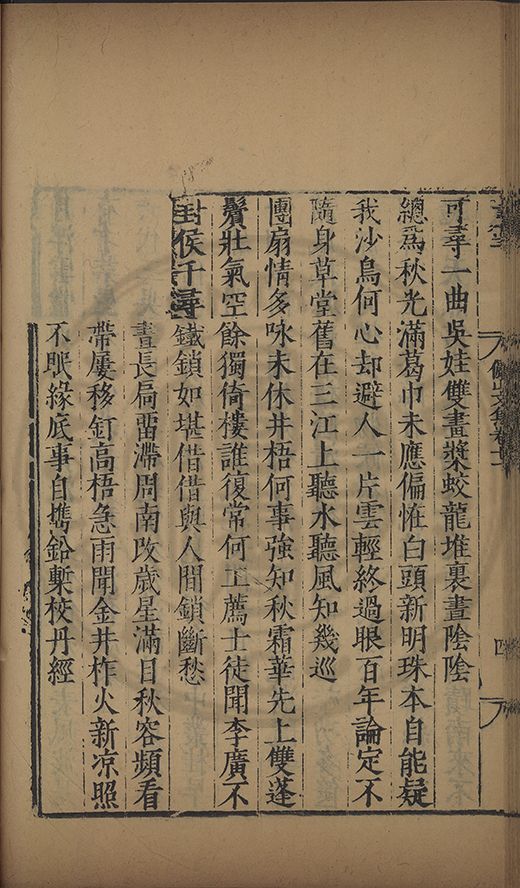 可尋一曲吳娃雙畫槳蛟龍堆裏晝陰陰
總爲秋光滿葛巾未應偏恠白頭新明珠本自能疑
我沙鳥何心却避人一片雲輕終過眼百年論定不
隨身草堂舊在三江上聽水聽風知幾巡
團扇情多咏未休井梧何事強知秋霜華先上雙蓬
鬢壯氣空餘獨倚樓誰復常何工薦士徒聞李廣不
封侯千尋鐵鎖如堪借借與人間鎖斷愁
晝長局畱滯周南攺歲星滿目秋容頻看
帶屢移釘高梧急雨聞金井柞火新凉照
不眠緣底事自擕鉛槧校丹經
四